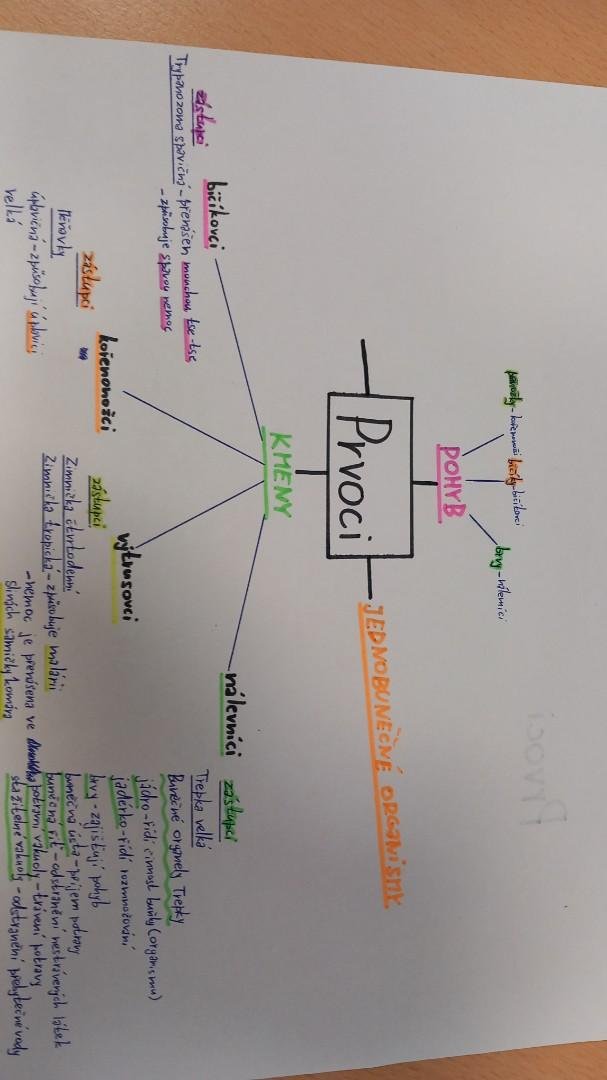 Prvoci
JEDNOBUNĚČNÉ ORGANISMY
POHYB
panožky - kořenonožci
bičíky - bičíkovci
brvy - nálevníci
KMENY
bičíkovci
zástupci
Trypanozoma spavičná - přenášen mouchou tse-tse
- způsobuje spavou nemoc
kořenonožci
zástupci
Měňavky
úplavičná - způsobují úplavici
velká
výtrusovci
zástupci
Zimnička čtvrtodenní
Zimnička tropická - způsobuje malárii
- nemoc je přenášena ve
slinách samičky komára
nálevníci
zástupci
Trepka velká
Buněčné orgánely Trepky
jádro - řídí činnost buňky (organismu)
jadérko - řídí rozmnožování
brvy - zajištují pohyb
buněčná ústa - příjem potravy
buněčná řiť - odstranění nestrávených látek
potravní vakuoly - trávení potravy
stažitelné vakuoly - odstranění přebytečné vody
Prvoci